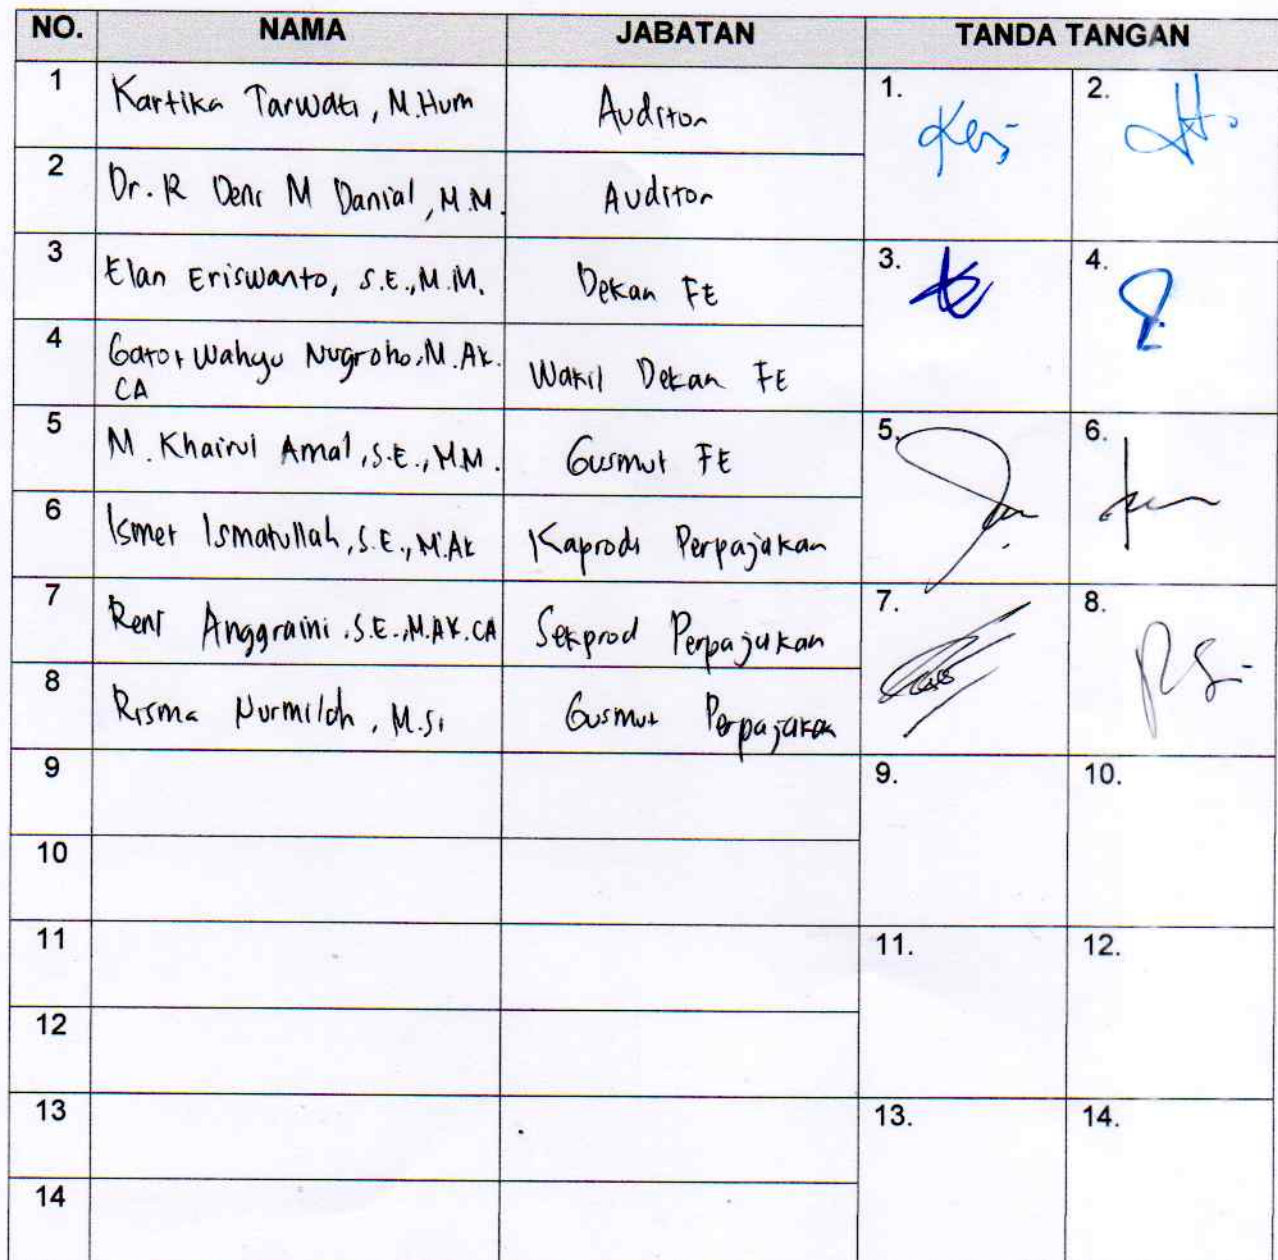 NO. NAMA JABATAN TANDA TANGAN
1 Kartika Tarwati, M.Hum Auditor 1. 2.
2 Dr. R Deni M Danial, M.M. Auditor
3 Elan Eriswanto, S.E., M.M. Dekan FE 3. 4.
4 Gatot Wahyu Nugroho, M.Ak. Wakil Dekan FE
CA
5 M. Khairul Amal, S.E., M.M. Gusmut FE 5. 6.
6 Ismet Ismatullah, S.E., M.Ak Kaprodi Perpajakan
7 Reni Anggraini, S.E., M.AK. CA Sekprod Perpajakan 7. 8.
8 Risma Nurmilah, M.Si Gusmut Perpajakan
9 9. 10.
10
11 11. 12.
12
13 13. 14.
14